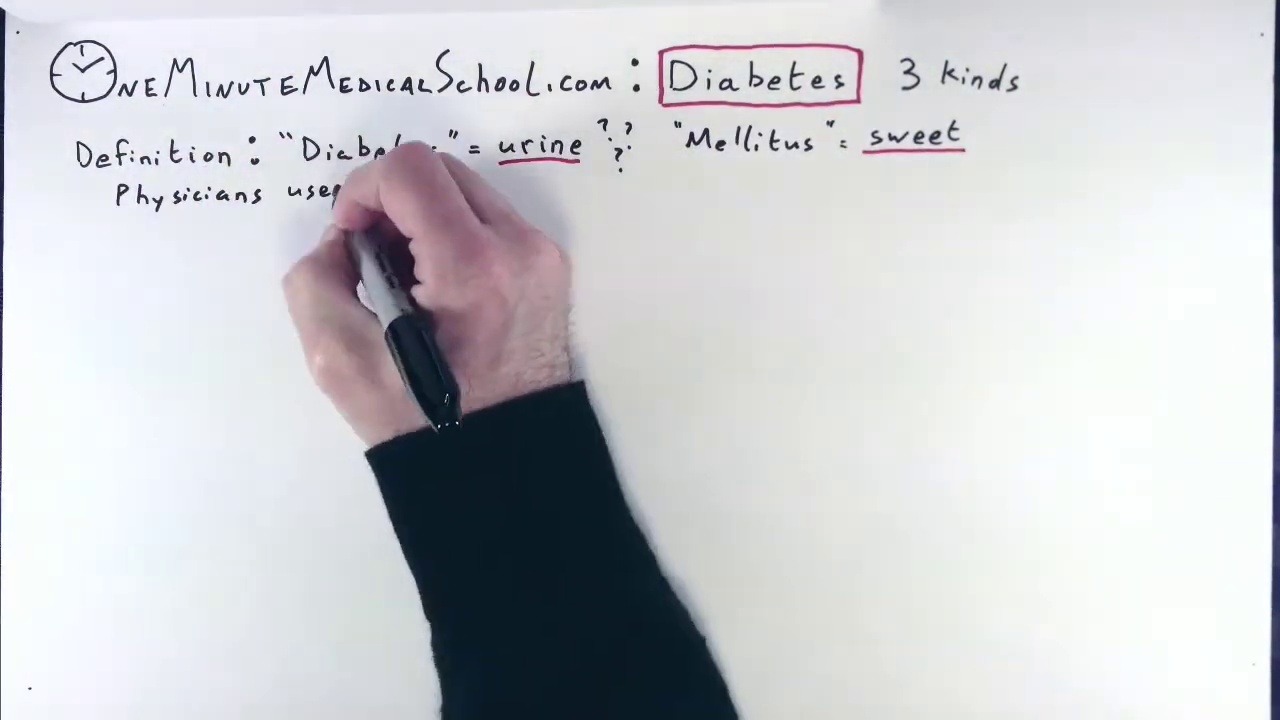 OneMinuteMedicalSchool.com : Diabetes 3 kinds
Definition : "Diabetes" = urine ??? "Mellitus" = sweet
Physicians used